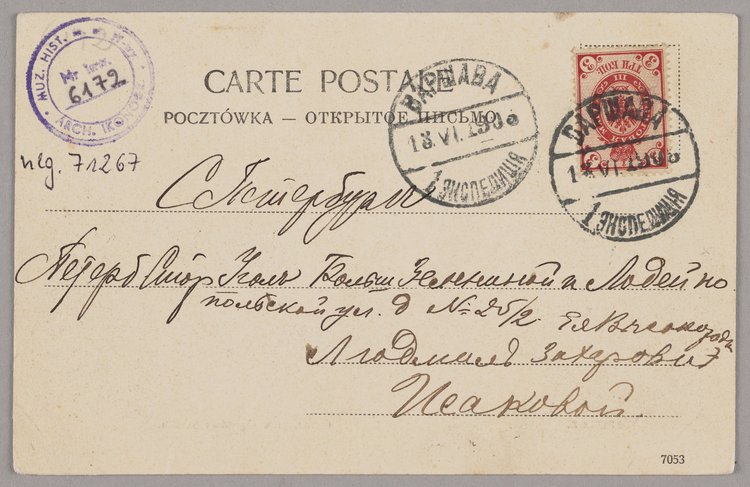 MUZ. HIST.
Nr inw.
6172
ARCH. IKONOGR.
neg. 71267
CARTE POSTALE
POCZTÓWKA — ОТКРЫТОЕ ПИСЬМО
ВАРШАВА
18.VI.1908
1 ЭКСПЕДИЦІЯ
ТРИ КОП.
3
ВАРШАВА
18.VI.1908
1 ЭКСПЕДИЦІЯ
С Петербург
Петерб Стор Уголъ Больш Зелениной и Лодейно
польской ул. д № 25/2 Ея Высокород
Людмилѣ Захаровнѣ
Исаковой.
7053